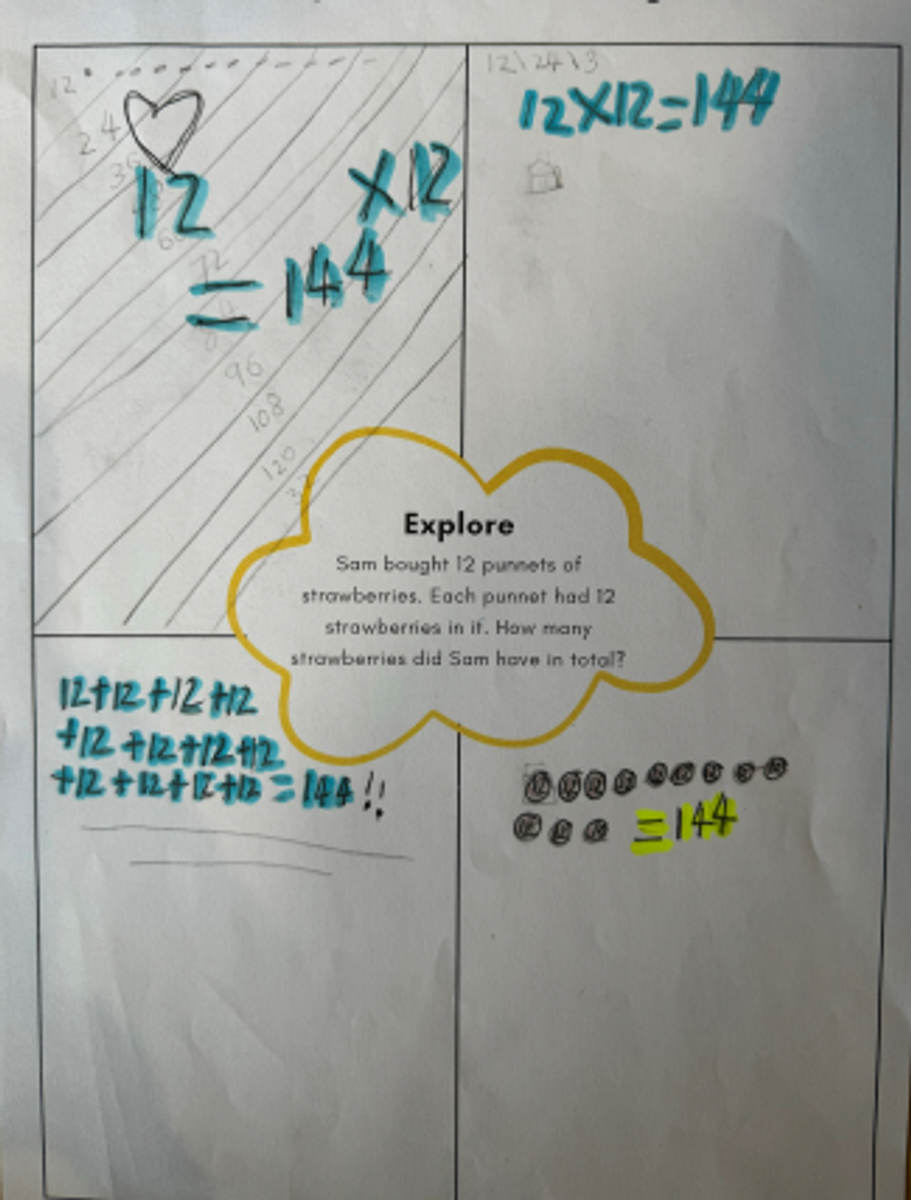 12
24
36
60
72
96
108
120
12
×12
= 144
12\24\3
12×12=144
Explore
Sam bought 12 punnets of
strawberries. Each punnet had 12
strawberries in it. How many
strawberries did Sam have in total?
12+12+12+12
+12+12+12+12
+12+12+12+12=144!!
=144